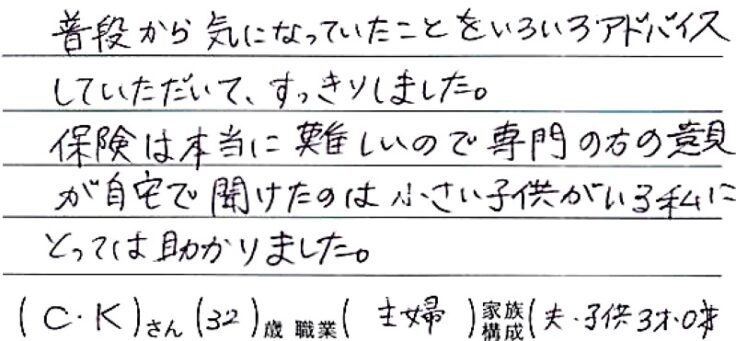 普段から気になっていたことをいろいろアドバイス
していただいて、すっきりしました。
保険は本当に難しいので専門の方の意見
が自宅で聞けたのは小さい子供がいる私に
とっては助かりました。
(C・K)さん(32)歳 職業(主婦)家族構成(夫・子供3才・0才